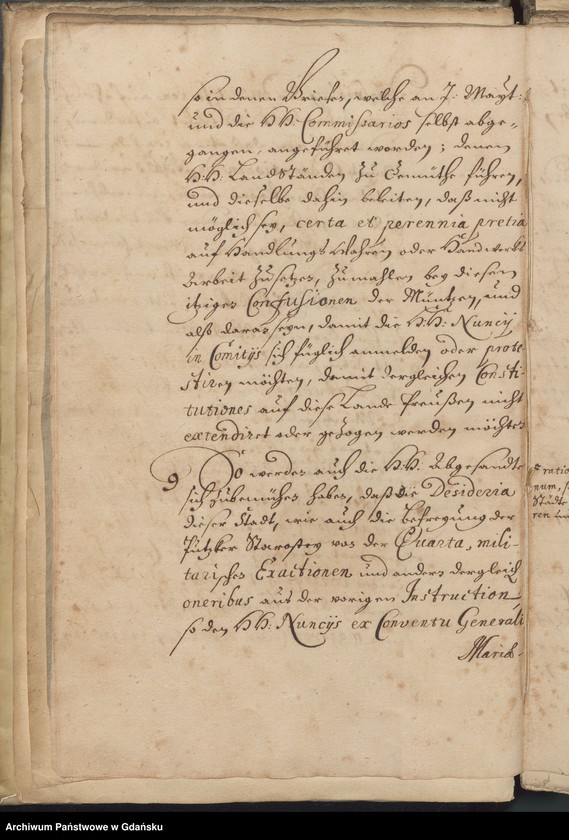 so in denen Briefen, welche an J: Mayt:
und die HH: Commissarios selbst abge-
gangen, angeführet worden; denen
HH: Land Ständen zu Gemüthe führen,
und dieselbe dahin beleiten, daß nicht
möglich sey, certa et perennia pretia
auf Handlungs Wahren oder Handwerks
Arbeit zu setzen, zumahlen bey diesen
itzigen Confusionen der Müntzen, und
alß daran seyn, damit die HH: Nuncij
in Comitijs sich füglich anmelden oder prote-
stiren möchten, damit dergleichen Consti-
tutiones auf diese Lande Preußen nicht
extendiret oder gezogen werden möchten
9 So werden auch die HH: Abgesandte
sich zubemühen haben, daß die Desideria
dieser Stadt, wie auch die Befreyung der
Putzker Starostey von der Quarta, mili-
tarischen Exactionen und andern dergleich
oneribus aus der vorigen Instruction,
so den HH: Nuncijs ex Conventu Generali
Marie-
ratio
num,
Städte
ren
Archiwum Państwowe w Gdańsku